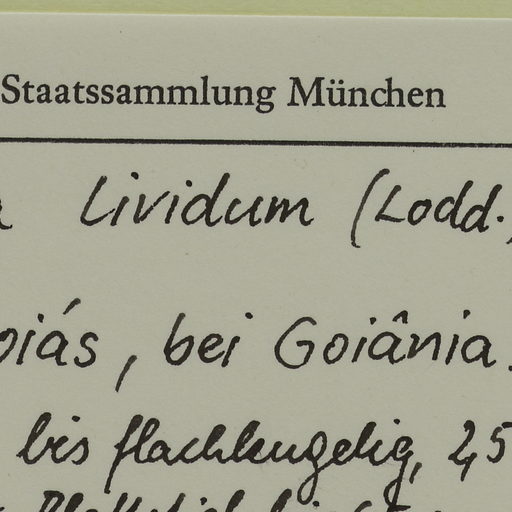 Staatssammlung München
Lividum (Lodd.
oiás, bei Goiânia.
bis flachkugelig, 2,5